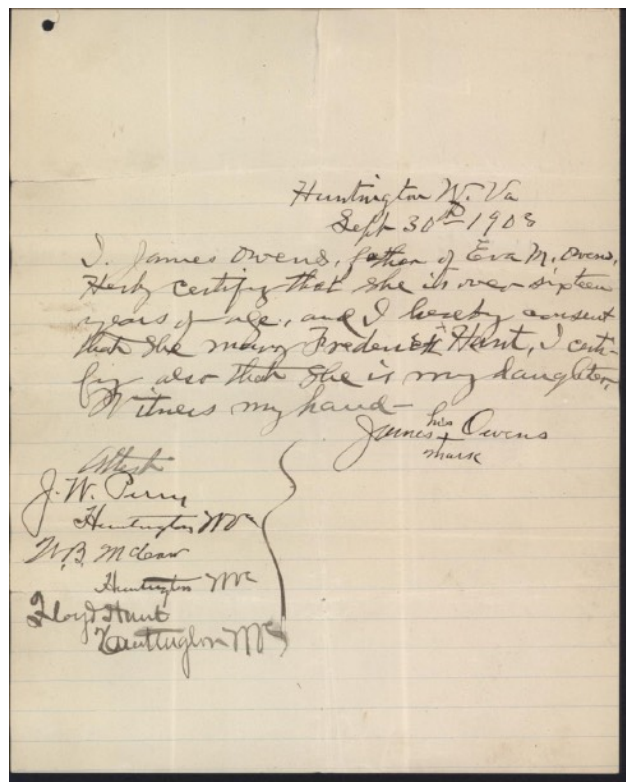 Huntington W. Va
Sept 30th 1908
I. James Owens, father of Eva M. Owens,
Herby certify that she is over sixteen
years of age, and I hereby consent
that she marry Frederick Hunt, I certi-
fy also that she is my daughter,
Witness my hand-
his
James + Owens
mark
Attest
J. W. Perry
Huntington WVa
W. B.
Huntington WVa
Floyd Hunt
Huntington WVa